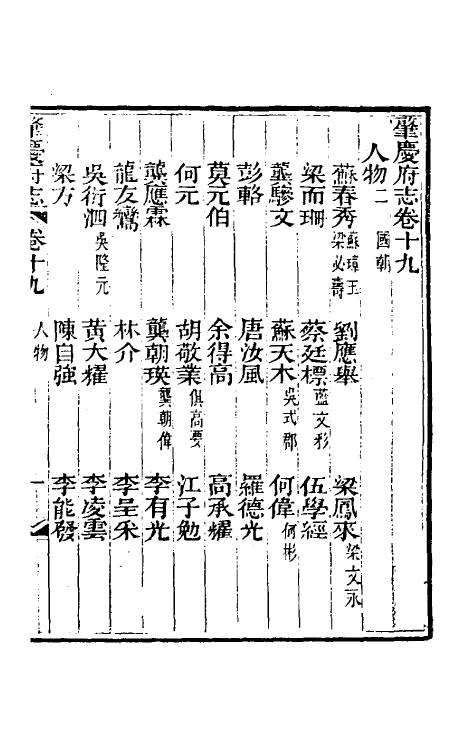 肇慶府志卷十九
人物二 國朝
蘇春秀 蘇璋玉 梁必壽 劉應舉 梁鳳來 梁文永
梁而珊 蔡廷標 藍文彩 伍學經
龔驂文 蘇天木 吳式郡 何偉 何彬
彭輅 唐汝風 羅德光
莫元伯 余得高 高承耀
何元 胡敬業 俱高要 江子勉
龔應霖 龔朝瑛 龔朝偉 李有光
龍友鸞 林介 李呈釆
吳衍泗 吳陸元 黃大耀 李凌雲
梁方 陳自強 李能發
肇慶府志 卷十九 人物 一